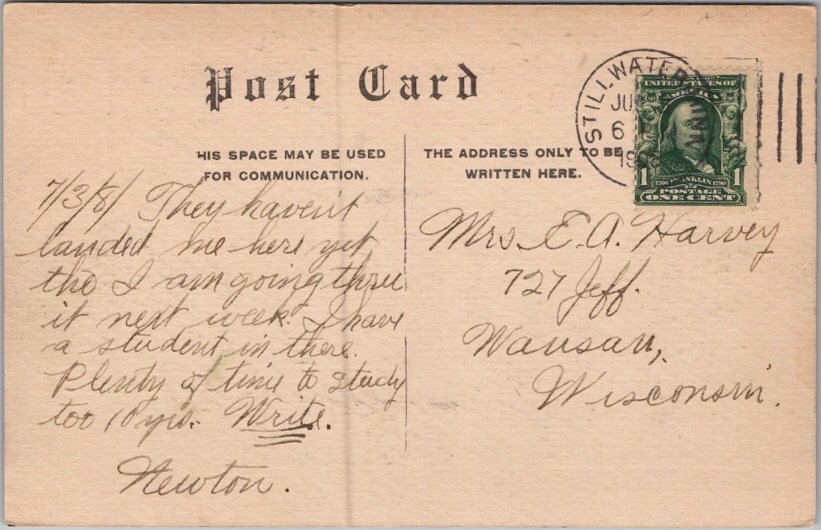 Post Card
HIS SPACE MAY BE USED
FOR COMMUNICATION.
THE ADDRESS ONLY TO BE
WRITTEN HERE.
STILLWATER MINN
JU
6
UNITED STATES OF
AMERICA
1 1
FRANKLIN
POSTAGE
ONE CENT
7/3/8/ They haven't
landed me here yet
tho I am going thru
it next week. I have
a student in there.
Plenty of time to study
too 10 yrs. Write.
Newton.
Mrs. E. A. Harvey
727 Jeff.
Wausau,
Wisconsin.